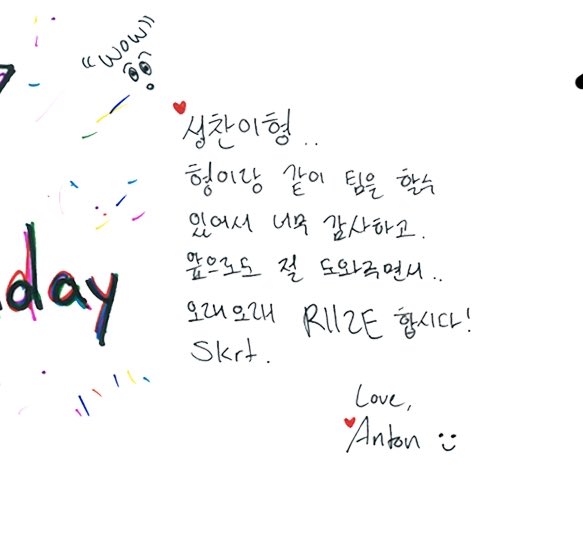 "WOW"
day
성찬이형..
형이랑 같이 팀을 할수
있어서 너무 감사하고.
앞으로도 절 도와주면서..
오래오래 RIIZE 합시다!
Skrt.
Love,
Anton